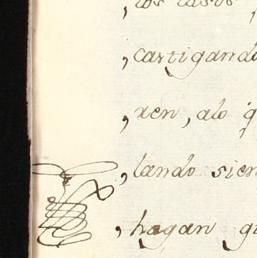 , los casos,
, castigando
, xen, alo q
, lando sien
, hagan qu